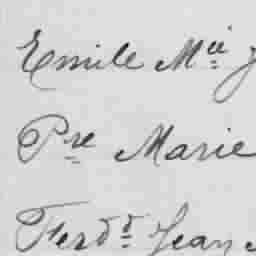 Emile Mie J
Pre Marie
Ferdd Jean